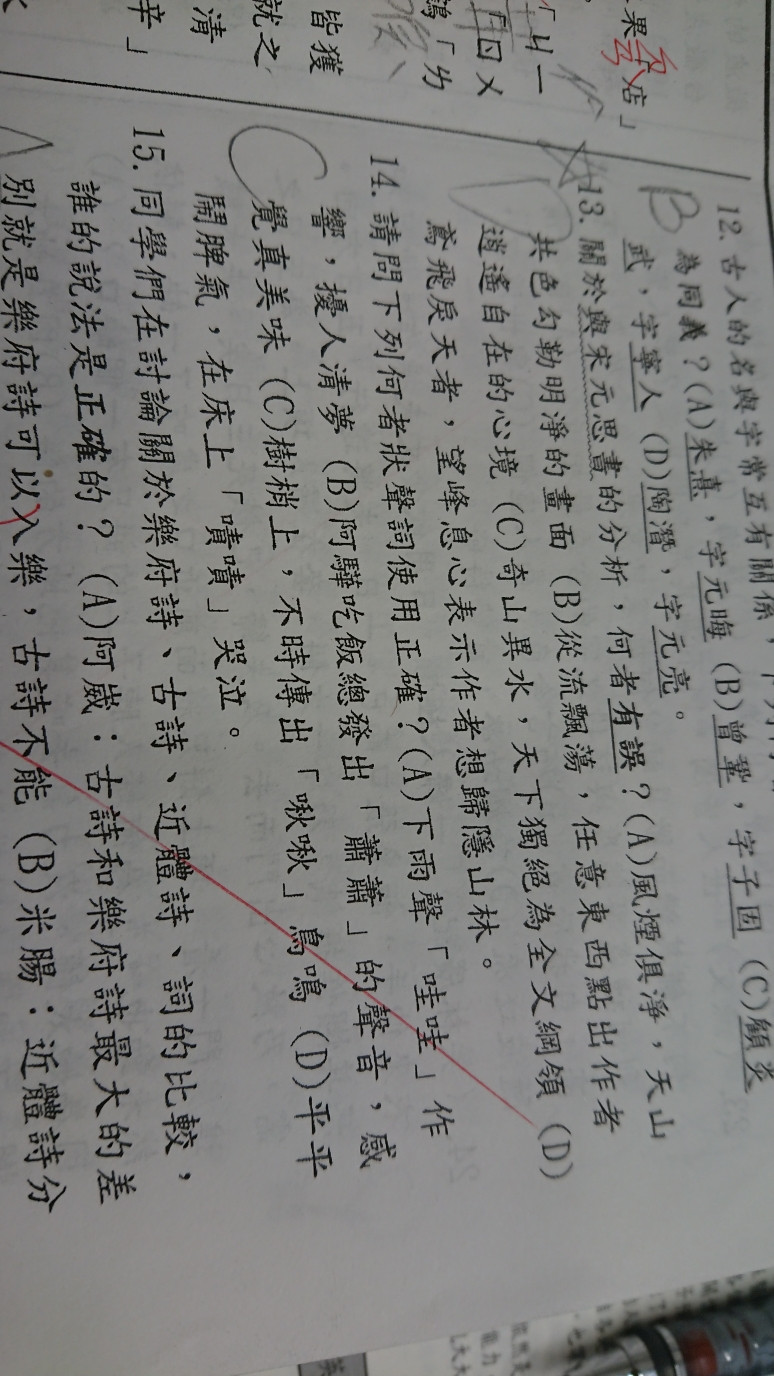 果
店」
「ㄐㄧ
「ㄖㄨ
鴿「ㄌ
皆獲
就之
清
辛」
B
12. 古人的名與字常互有關係,
為同義?(A)朱熹,字元晦 (B)曾鞏,字子固 (C)顧炎
武,字寧人 (D)陶潛,字元亮。
13. 關於與宋元思書的分析,何者有誤?(A)風煙俱淨,天山
共色勾勒明淨的畫面 (B)從流飄蕩,任意東西點出作者
逍遙自在的心境 (C)奇山異水,天下獨絕為全文綱領 (D)
鳶飛戾天者,望峰息心表示作者想歸隱山林。
C
14. 請問下列何者狀聲詞使用正確?(A)下雨聲「哇哇」作
響,擾人清夢 (B)阿驊吃飯總發出「蕭蕭」的聲音,感
覺真美味 (C)樹梢上,不時傳出「啾啾」鳥鳴 (D)平平
鬧脾氣,在床上「嘖嘖」哭泣。
15. 同學們在討論關於樂府詩、古詩、近體詩、詞的比較,
誰的說法是正確的? (A)阿威:古詩和樂府詩最大的差
別就是樂府詩可以入樂,古詩不能 (B)米腸:近體詩分